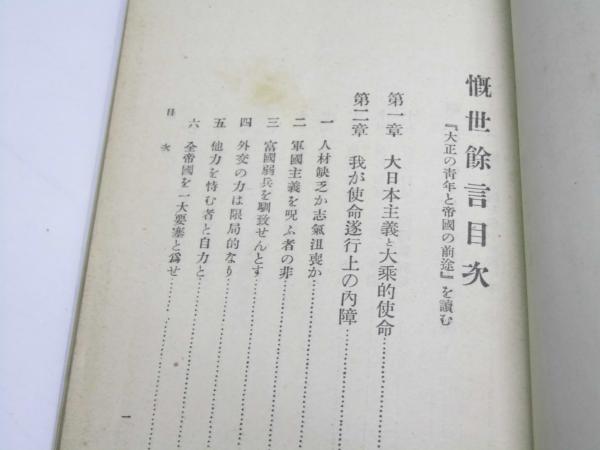 慨世餘言目次
『大正の靑年と帝國の前途』を讀む
第一章 大日本主義と大乘的使命…………
第二章 我が使命遂行上の內障…………
一 人材缺乏か志氣沮喪か…………
二 軍國主義を呪ふ者の非…………
三 富國弱兵を馴致せんとす…………
四 外交の力は限局的なり…………
五 他力を恃む者と自力と…………
六 全帝國を一大要塞と爲せ…………
目次
一